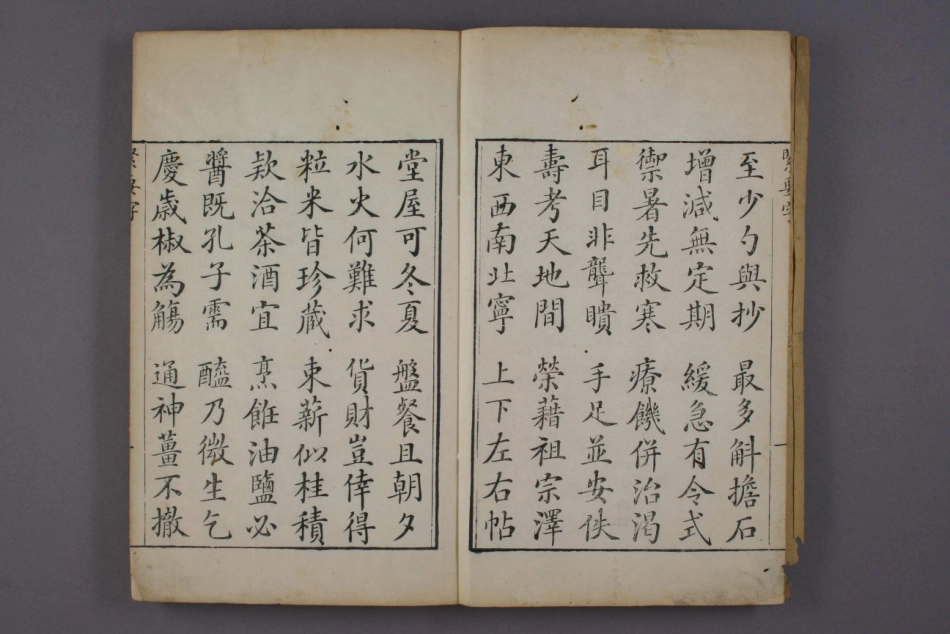 至少勺與抄　最多斛擔石
增減無定期　緩急有令式
禦暑先救寒　療饑併治渴
耳目非聾瞶　手足並安佚
壽考天地間　榮藉祖宗澤
東西南北寧　上下左右帖
堂屋可冬夏　盤餐且朝夕
水火何難求　貨財豈倖得
粒米皆珍藏　束薪似桂積
欵洽茶酒宜　烹飪油鹽必
醬既孔子需　醯乃微生乞
慶歲椒為觴　通神薑不撤